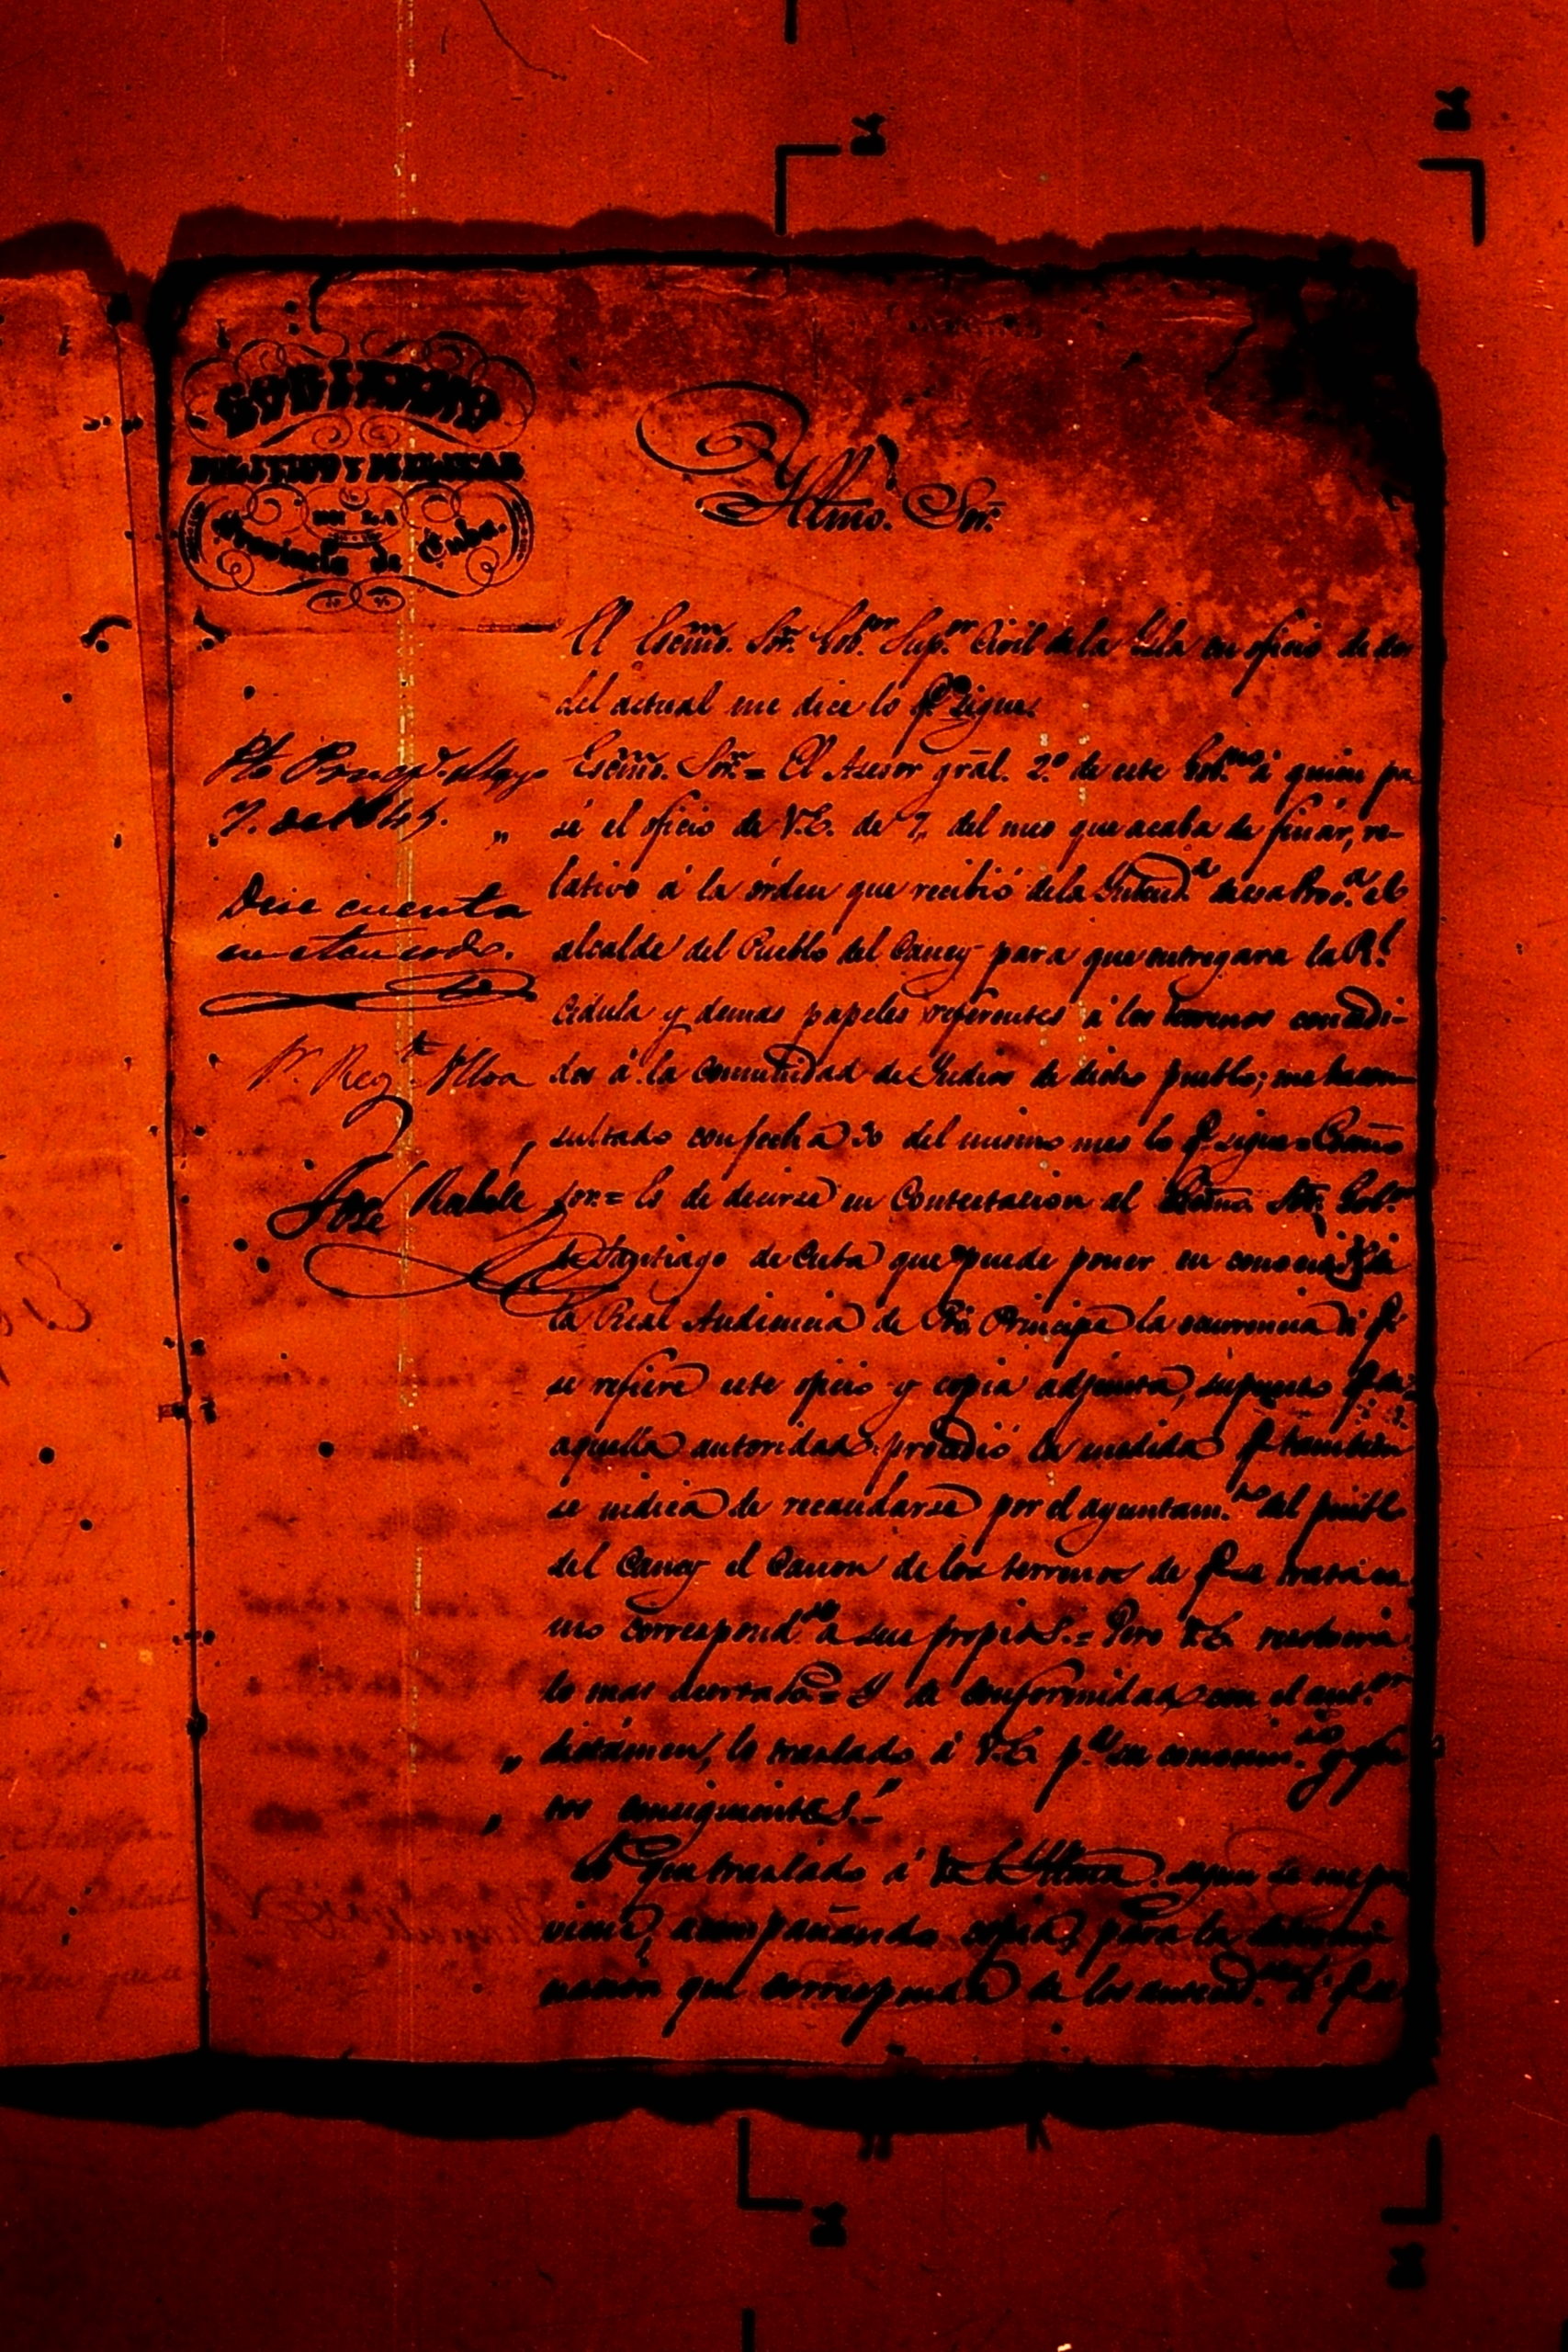 GOBIERNO
POLITICO Y MILITAR
DE LA
Provincia de Cuba.
Yltmo. Sor.
El Escmo. Sor. Gobor. Supor. Civil de la Ysla en oficio de dos
del actual me dice lo q. sigue.
Escmo. Sor. = El Asesor gral. 2.º de este Gobno. á quien pa-
sé el oficio de V.E. de 7 del mes que acaba de finar, re-
lativo á la órden que recibió de la Yntend.a de esa Prov.a el
alcalde del Pueblo del Caney para que entregara la Rl.
cédula y demas papeles referentes á los terrenos concedi-
dos á la comunidad de Yndios de dicho pueblo; me ha con-
sultado con fecha 30 del mismo mes lo q. sigue = Escmo
Sor. = Es de decirse en contestacion al Escmo Sor. Gobor.
de Santiago de Cuba que puede poner en
la Real Audiencia de Pto. Principe la ocurrencia á q.
se refiere este oficio y copia adjunta, supuesto q. de
aquella autoridad procedió la medida q. tambien
se indica de recaudarse por el ayuntam.to del pueblo
del Caney el Canon de los terrenos de q. se trata co-
mo correspond.te á sus propios. = Pero V.E. resolverá
lo mas acertado = Y de conformidad con el antor.
dictámen, lo traslado á V.E. pa. su conocim.to y efec-
tos consiguientes."
Lo que traslado á V.S. Yltma. segun se me pre-
viene, acompañando copia para la
nacion que corresponda de los anteced.tes á q. se
Pto Princip.e Mayo
7. de 1845.
Dese cuenta
en el acuerdo.
Sr. Reg.te Ulloa
José Rafael